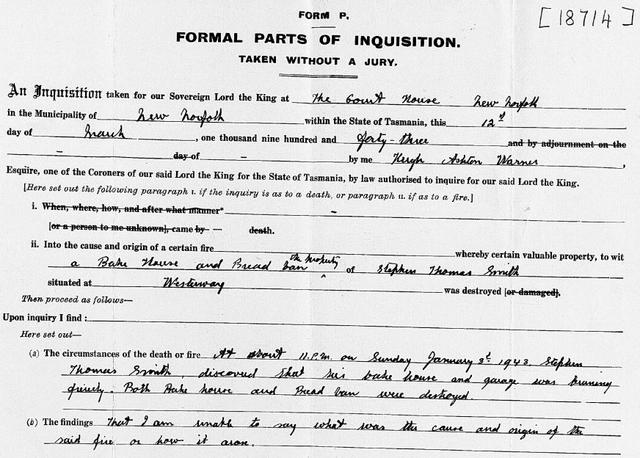 [18714]
FORM P.
FORMAL PARTS OF INQUISITION.
TAKEN WITHOUT A JURY.
An Inquisition taken for our Sovereign Lord the King at The Court House New Norfolk
in the Municipality of New Norfolk within the State of Tasmania, this 12th
day of March, one thousand nine hundred and forty-three and by adjournment on the
– day of – by me Hugh Ashton Warner
Esquire, one of the Coroners of our said Lord the King for the State of Tasmania, by law authorised to inquire for our said Lord the King.
[Here set out the following paragraph i. if the inquiry is as to a death, or paragraph ii. if as to a fire.]
i. When, where, how, and after what manner* –
[or a person to me unknown], came by – death.
ii. Into the cause and origin of a certain fire whereby certain valuable property, to wit
a Bake House and Bread Van the property of Stephen Thomas Smith
situated at Westerway was destroyed [or damaged].
Then proceed as follows—
Upon inquiry I find :
Here set out—
(a) The circumstances of the death or fire At about 11.P.M. on Sunday January 3rd. 1943. Stephen
Thomas Smith, discovered that his bake house and garage was burning
fiercely. Both Bake house and Bread van were destroyed.
(b) The findings That I am unable to say what was the cause and origin of the
said fire or how it arose.